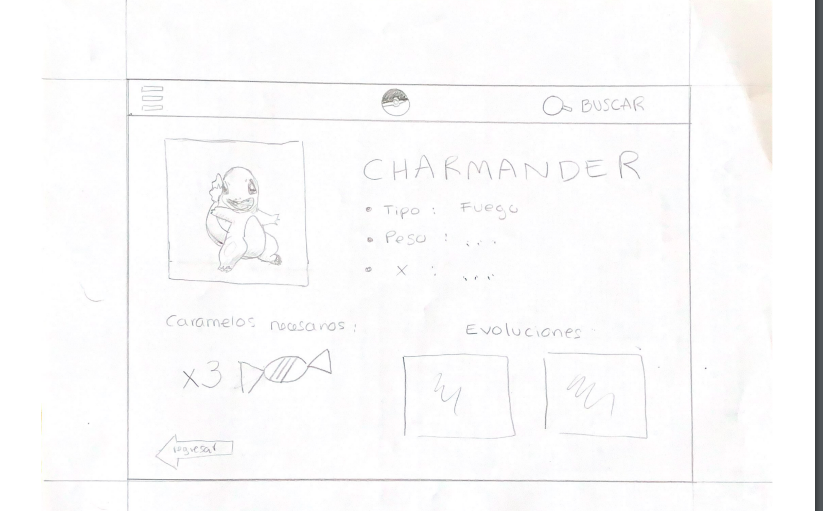 BUSCAR
CHARMANDER
• Tipo : Fuego
• Peso : ...
• X : ...
Caramelos necesarios :
x3
Evoluciones :
regresar